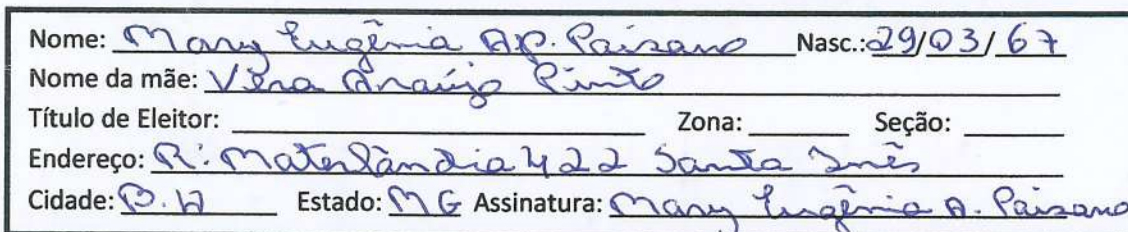 Nome: Mary Eugênia AP. Paixano Nasc.: 29/03/67
Nome da mãe: Vera Araújo Pinto
Título de Eleitor: Zona: Seção:
Endereço: R: Materlândia 422 Santa Inês
Cidade: B.H Estado: MG Assinatura: Mary Eugênia A. Paixano